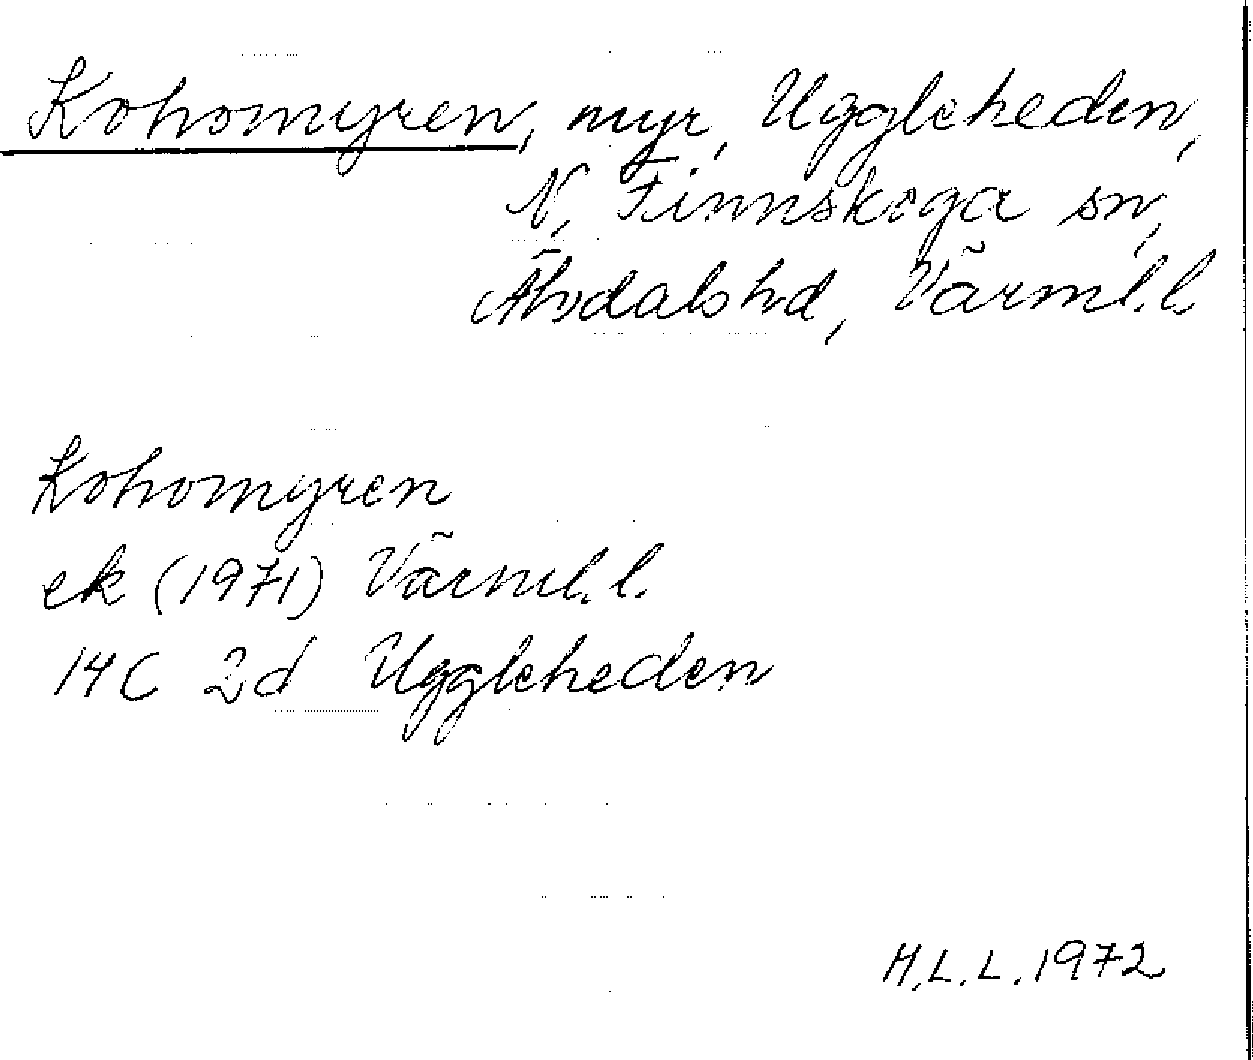 Kohomyren, myr, Uggleheden,
N. Finnskoga sn,
Älvdals hd, Värml. l.
Kohomyren
ek (1971) Värml. l.
14C 2d Uggleheden
H.L.L. 1972